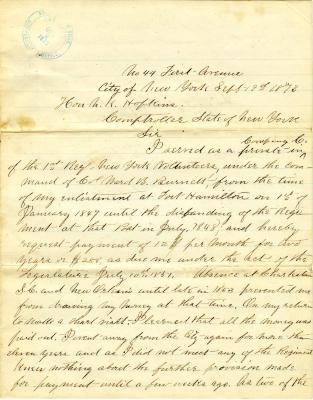 No 44 First Avenue
City of New York Sept 12th 1873
Hon N. K. Hopkins.
Comptroller State of New York
Sir
I served as a private in Company C.
of the 1st Regt New York Volunteers, under the com-
mand of Col Ward B. Burnett, from the time
of my enlistment at Fort Hamilton on 1st of
January 1847 until the disbanding of the Regi-
ment at that Post in July 1848, and hereby
request payment of 12 $ per month for two
years or $ 288, as due me under the act of the
Legislature July 10th 1851. Absence at Charleston
S.C. and New Orleans until late in 1853 prevented me
from drawing my money at that time. On my return
to make a short visit I learned that all the money was
paid out. I went away from the City again for more than
eleven years and as I did not meet any of the Regiment
knew nothing about the further provision made
for payment until a few weeks ago. As two of the